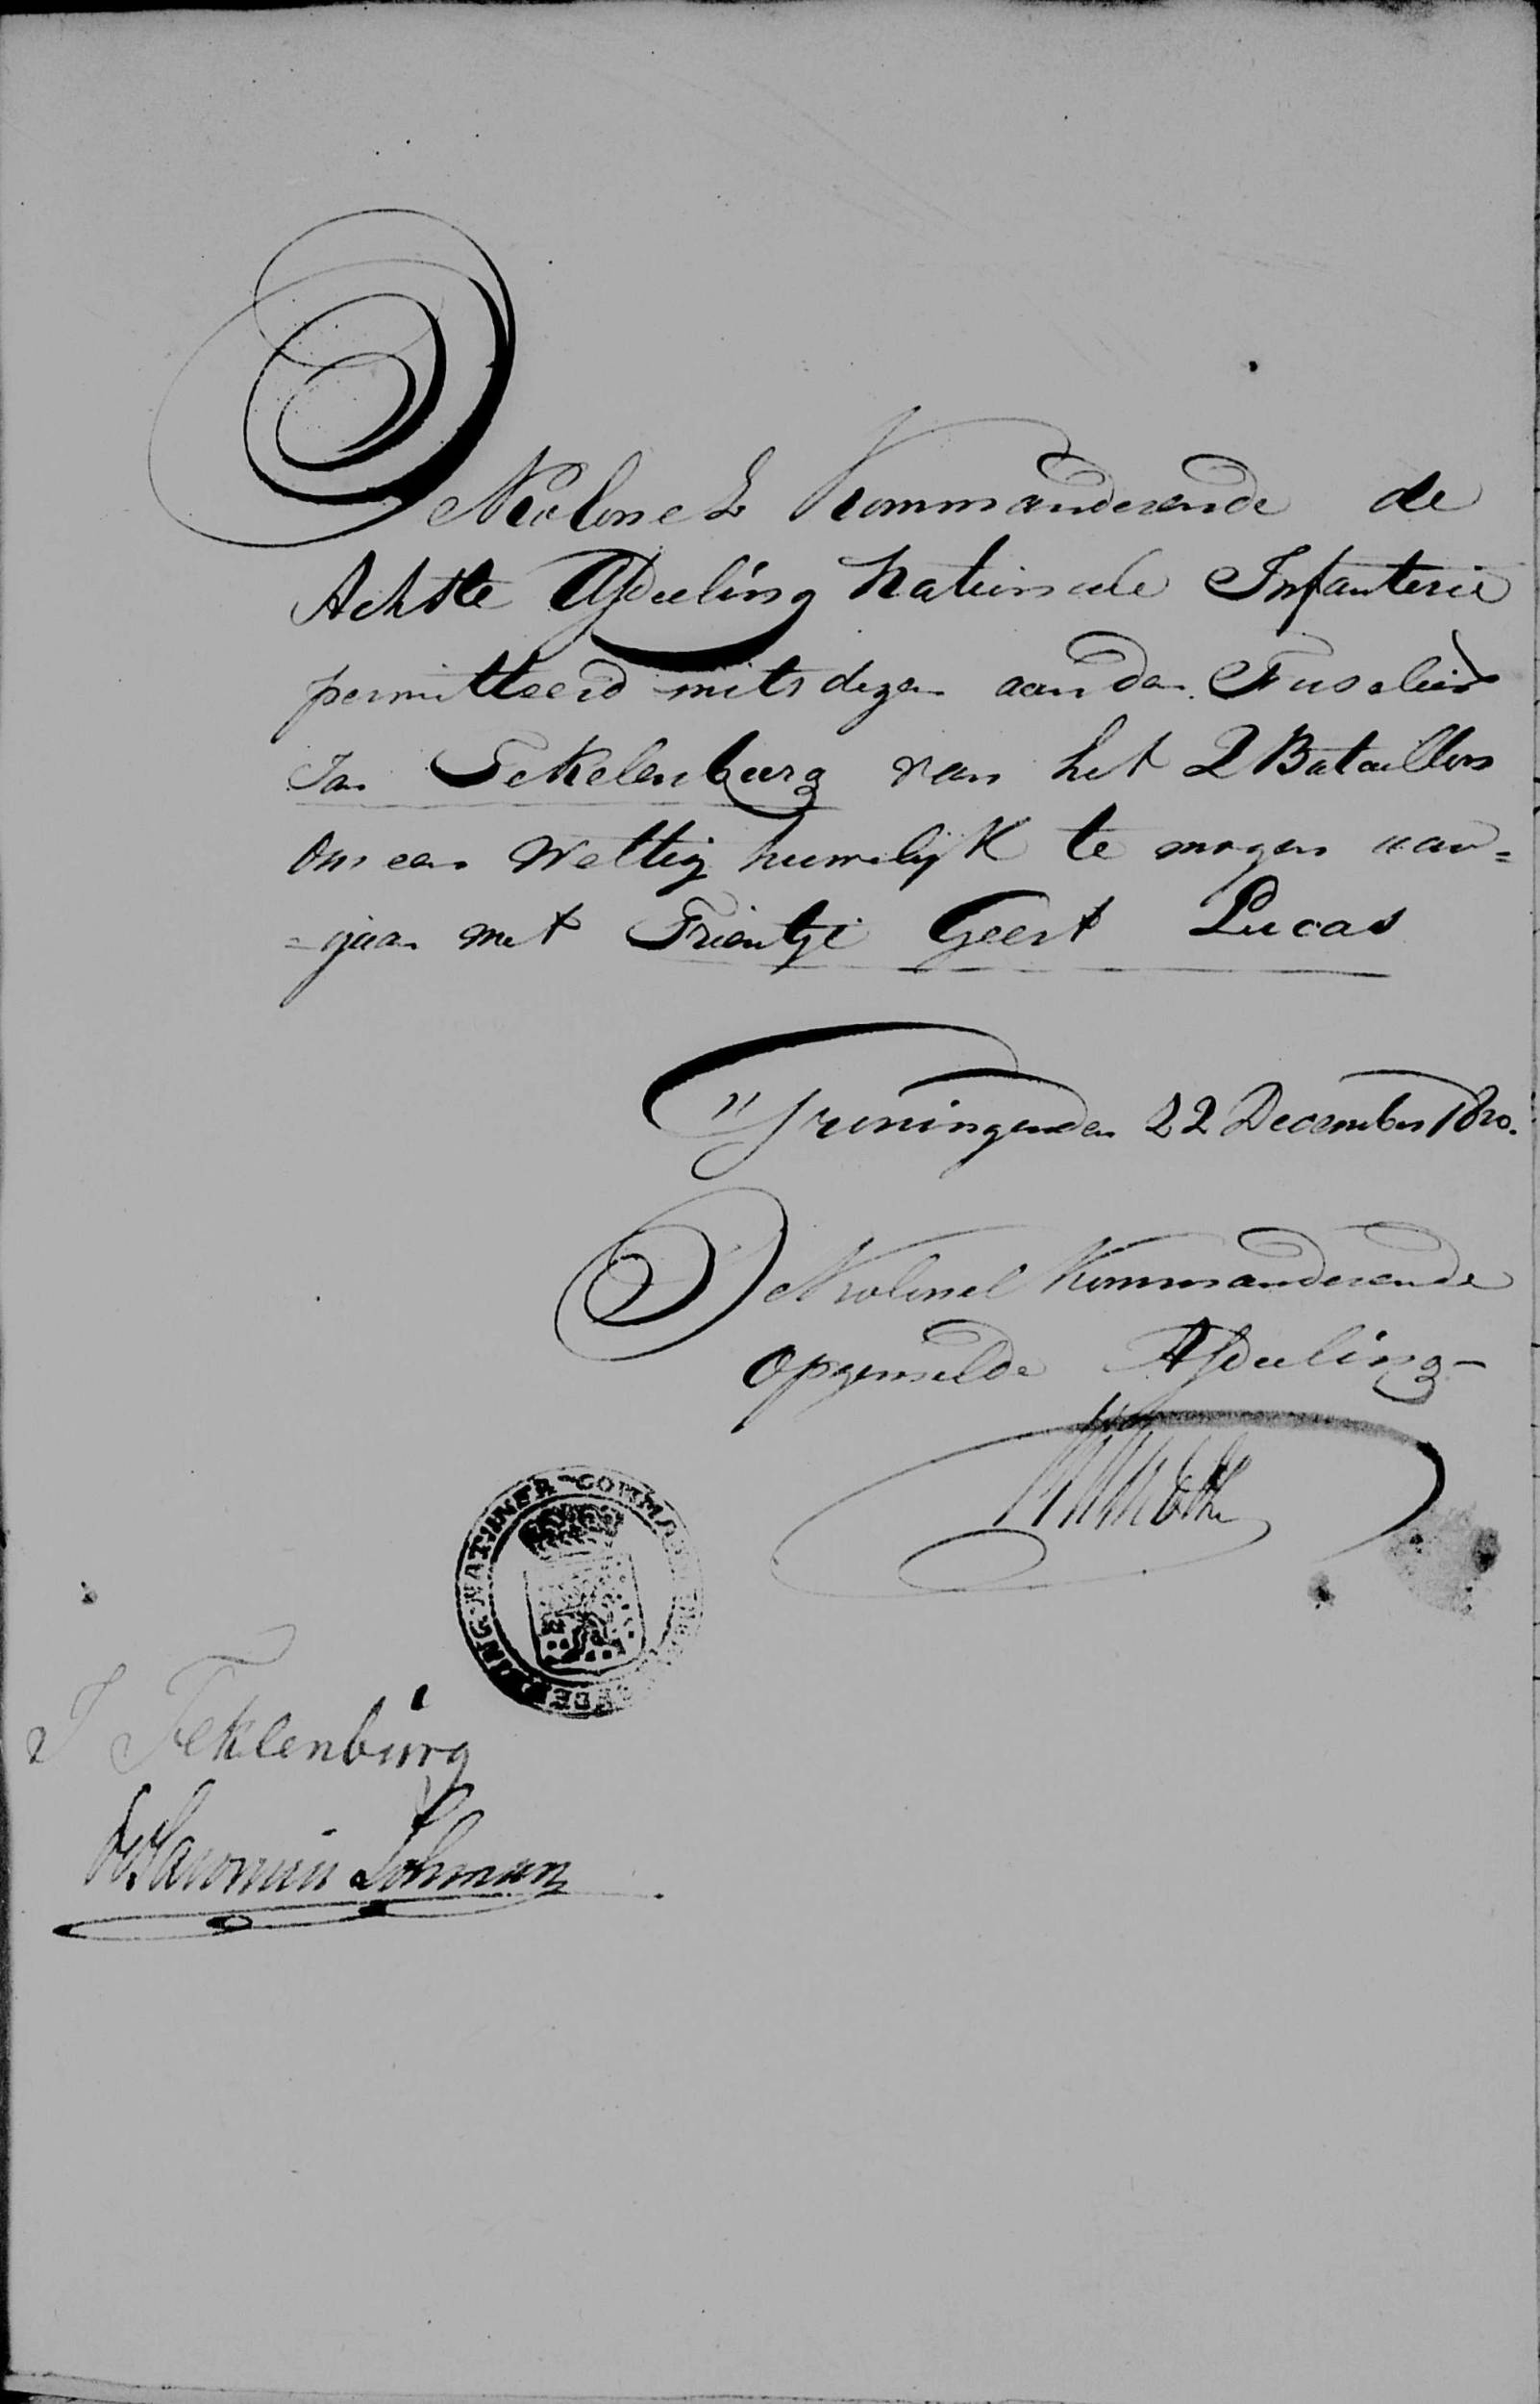 De Kolonel Kommanderende de
Achtste Afdeeling Nationale Infanterie
permitteerd mits dezen aan den Fuselier
Jan Tekelenburg van het 2 Bataillon
om een Wettig huwelijk te mogen aan=
=gaan met Trientje Geert Lucas
Groningen den 22 December 1820.
De Kolonel Kommanderende
opgemelde Afdeeling
COMMA
AFDEELING NAT: INFR
J Teklenburg
Savornin Lohman